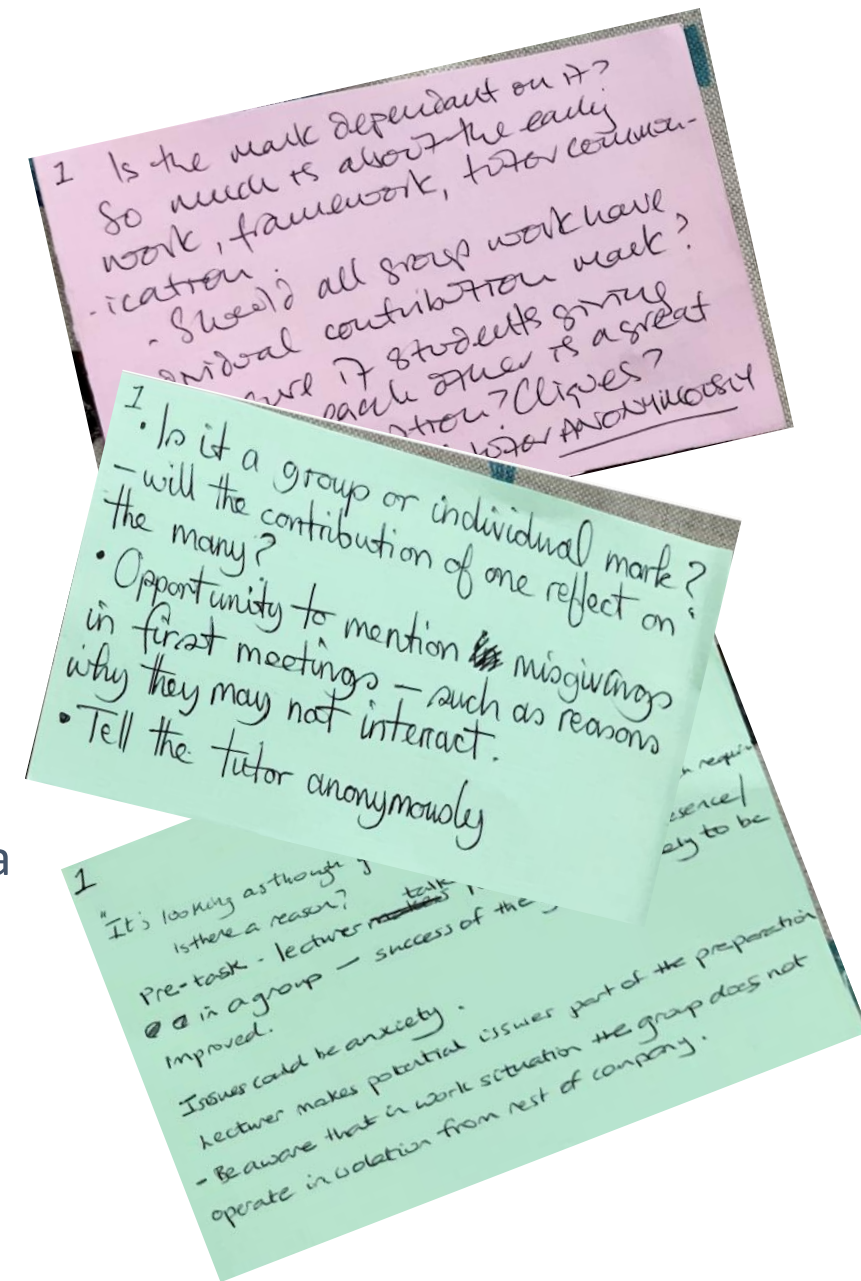 1 Is the mark dependant on it?
So much is about the early
work, framework, tutor commun-
-ication.
- Should all group work have
contribution mark?
if students giving
each other is a great
? Cliques?
ANONYMOUSLY
1
• Is it a group or individual mark?
- will the contribution of one reflect on
the many?
• Opportunity to mention misgivings
in first meetings - such as reasons
why they may not interract.
• Tell the tutor anonymously
a
1
"It's looking as though
is there a reason?
Pre-task - lecturer talk
in a group - success of the
ely to be
improved.
Issues could be anxiety.
Lecturer makes potential issues part of the preparation
- Be aware that in work situation the group does not
operate in isolation from rest of company.